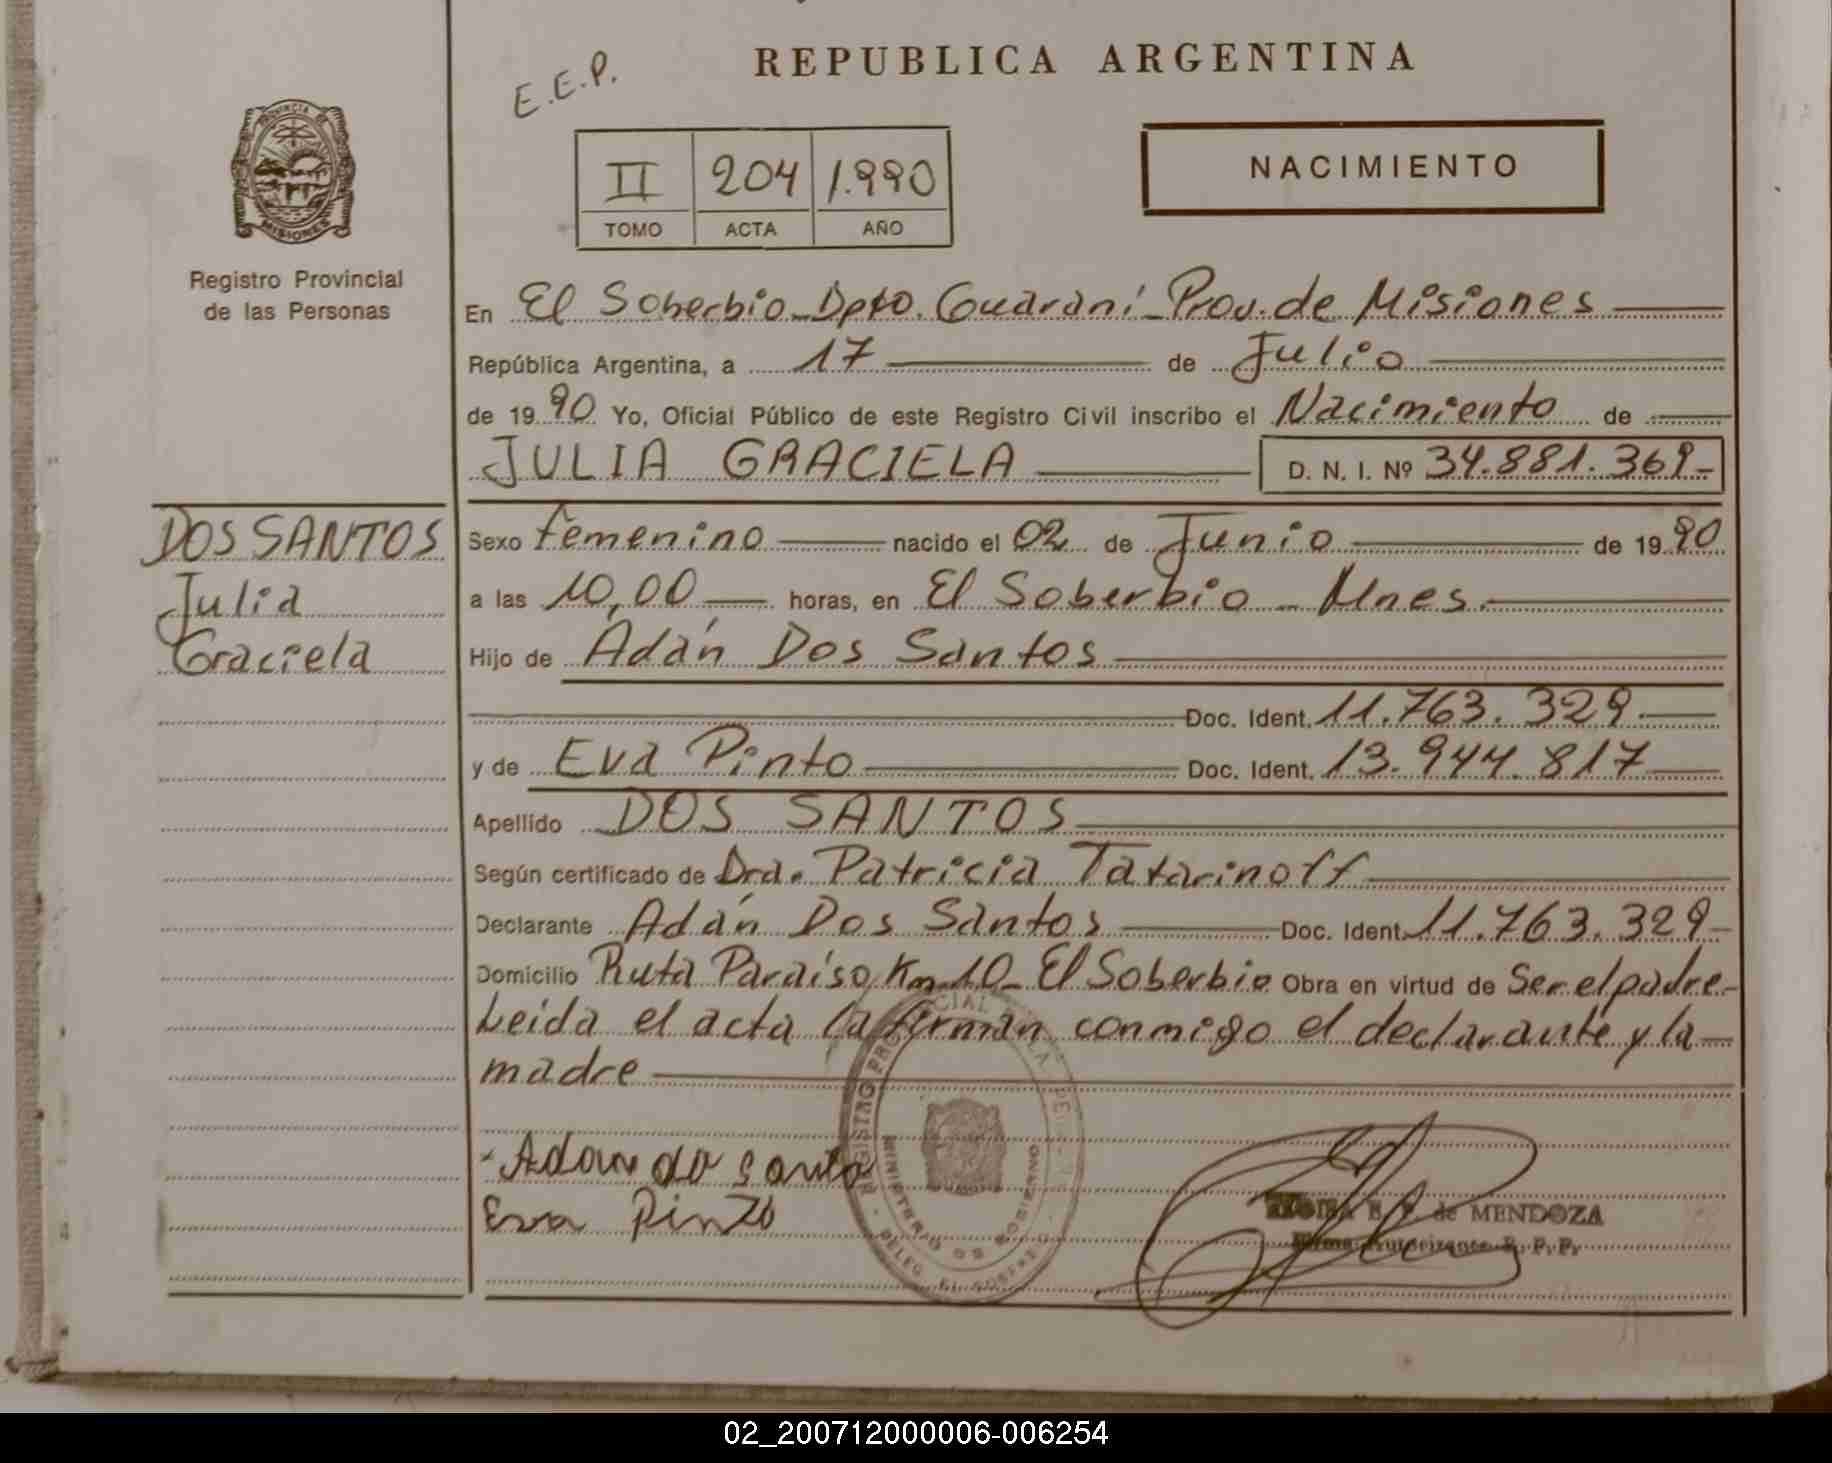 REPUBLICA ARGENTINA
E.E.P.
II 204 1.990
TOMO ACTA AÑO
NACIMIENTO
MISIONES
Registro Provincial
de las Personas
En El Soberbio - Dpto. Guaraní - Prov. de Misiones
República Argentina, a 17 de Julio
de 1990 Yo, Oficial Público de este Registro Civil inscribo el Nacimiento de
JULIA GRACIELA D. N. I. Nº 34.881.369-
DOS SANTOS
Julia
Graciela
Sexo Femenino nacido el 02 de Junio de 1990
a las 10,00 horas, en El Soberbio - Mnes.
Hijo de Adán Dos Santos
Doc. Ident. 11.763.329
y de Eva Pinto Doc. Ident. 13.944.817
Apellido DOS SANTOS
Según certificado de Dra. Patricia Tatarinoff
Declarante Adán Dos Santos Doc. Ident. 11.763.329-
Domicilio Ruta Paraíso Km 10 - El Soberbio Obra en virtud de Ser el padre-
Leida el acta la firman conmigo el declarante y la
madre
Adan do santo
Eva Pinto
MINISTERIO DE GOBIERNO
de MENDOZA
Firma Autorizante R. P. P.
02_200712000006-006254